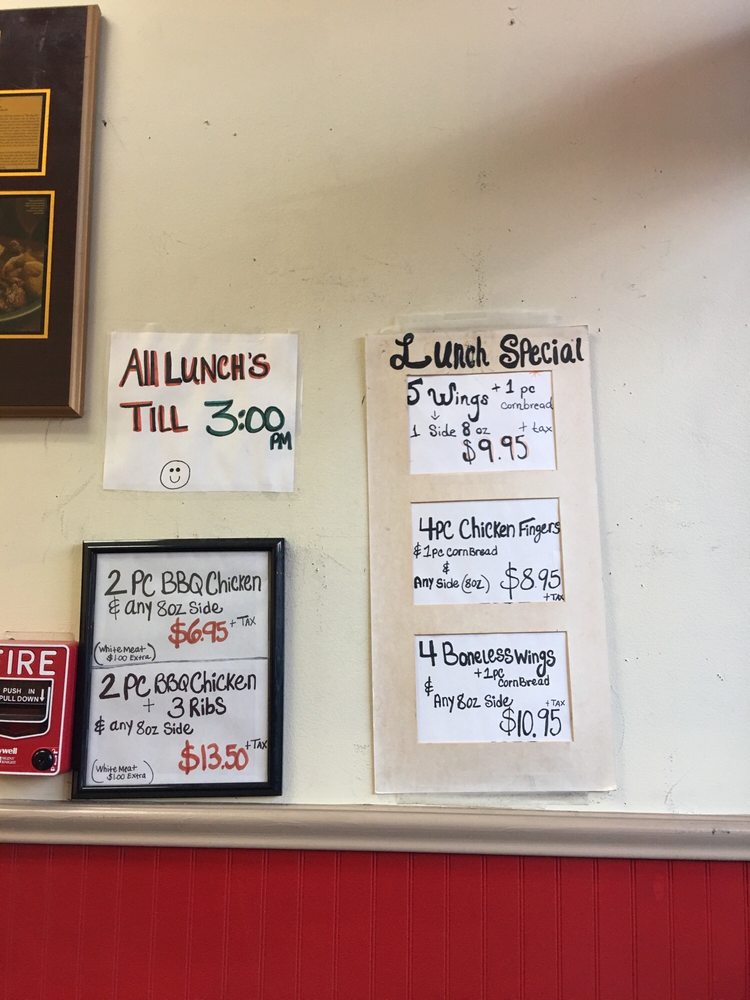 All LUNCH'S
TILL 3:00
PM
Lunch Special
5 Wings + 1 pc
cornbread
1 Side 8 oz + tax
$9.95
4PC Chicken Fingers
& 1pc CornBread
&
Any Side (8oz) $8.95
+ TAX
4 Boneless Wings
+ 1pc
CornBread
&
Any 8oz Side
+ TAX
$10.95
2 PC BBQ Chicken
& any 8oz Side
$6.95 + TAX
(White Meat
$1.00 Extra)
2 PC BBQ Chicken
+ 3 Ribs
& any 8oz Side
$13.50 + TAX
(White Meat
$1.00 Extra)
FIRE
PUSH IN
PULL DOWN